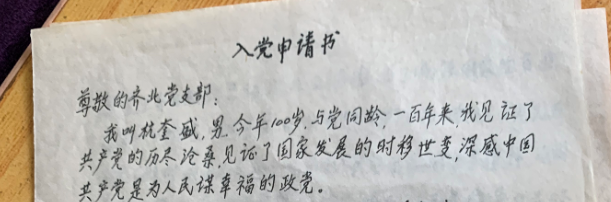 入党申请书
尊敬的齐北党支部：
我叫杭奎盛，男，今年100岁，与党同龄，一百年来，我见证了
共产党的历尽沧桑，见证了国家发展的时移世变，深感中国
共产党是为人民谋幸福的政党。